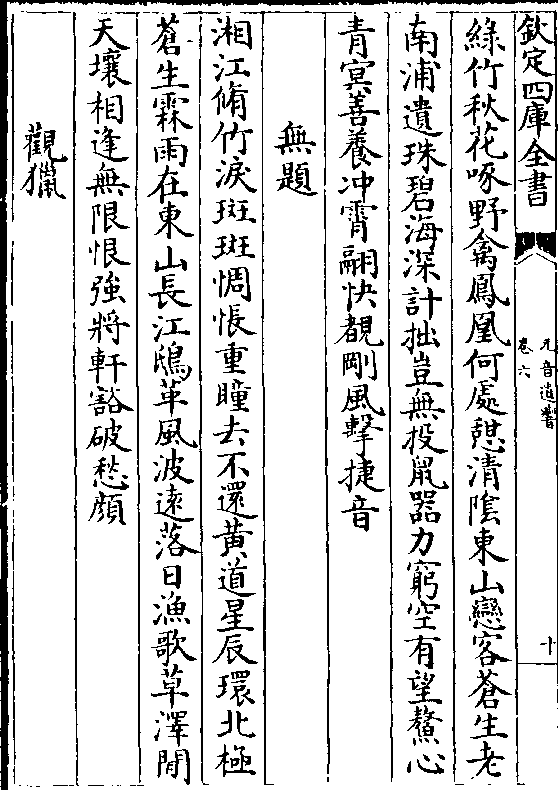 欽定四庫全書
元音遺響
卷六
十
綠竹秋花啄野禽鳳凰何處憩清陰東山戀客蒼生老
南浦遺珠碧海深計拙豈無投鼠器力窮空有望鰲心
青冥善養冲霄翮快覩剛風擊捷音
無題
湘江脩竹淚斑斑惆悵重瞳去不還黄道星辰環北極
蒼生霖雨在東山長江鴟革風波逺落日漁歌草澤閒
天壤相逢無限恨強將軒豁破愁顔
觀獵